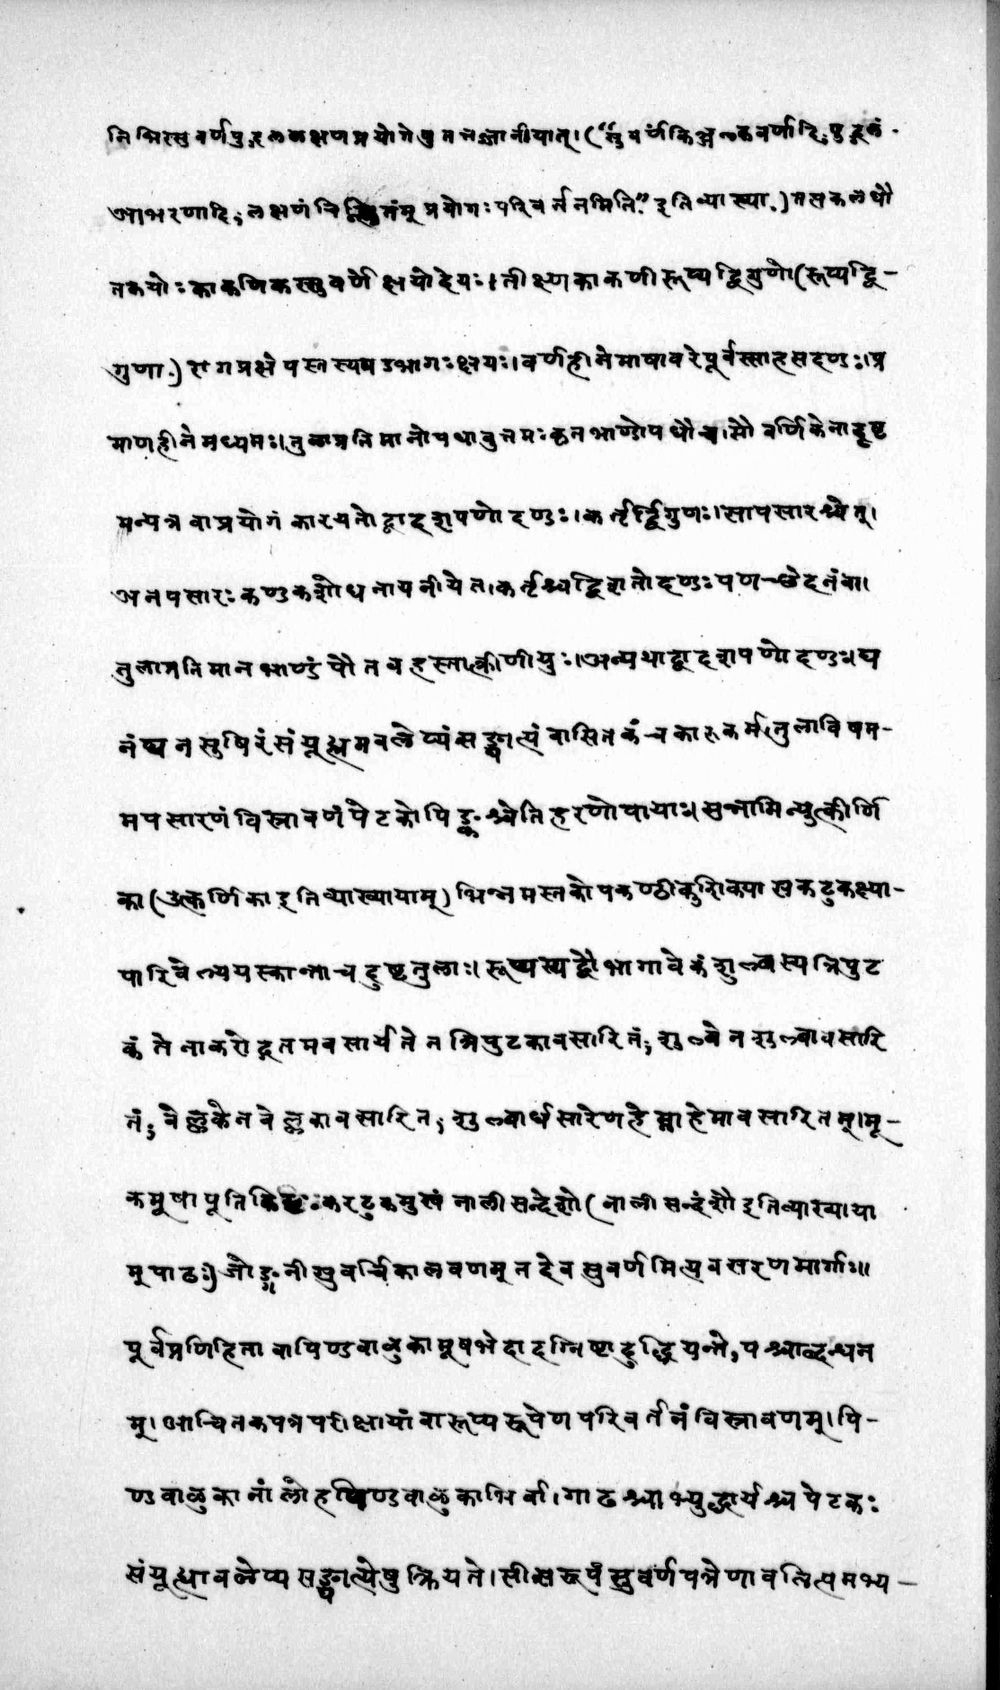 तिभिस्सुवर्णपुद्गललक्षणप्रयोगेषु तत्तज्जानीयात्। (“सुवर्णकिञ्जल्कवर्णादि, पुद्गलं
आभरणादि, लक्षणं चिह्नितंम् प्रयोगः परिवर्तनमिति.” इति व्याख्या.) तप्तकलधौ
तकयोः काकणिकस्सुवर्णे क्षयो देयः। तीक्ष्णकाकणी रूप्यद्विगुणो (रूप्यद्वि-
गुणा.) रागप्रक्षेपस्तस्य षड्भागः क्षयः। वर्णहीने माषावरे पूर्वस्साहसदण्डः। प्र
माणहीने मध्यमः। तुलाप्रतिमानोपधावुत्तमः कृतभाण्डोपधौ च। सौवर्णिकेनादृष्ट
मन्यत्र वा प्रयोगं कारयतो द्वादशपणो दण्डः। कर्तृर्द्विगुणः। सापसारश्चेत्।
अनपसारः कण्डकशोधनाय नीयेत। कर्तृश्च द्विशतो दण्डः पणच्छेदनं वा।
तुलाप्रतिमानभाण्डं पौतवहस्तात्क्रीणीयुः। अन्यथा द्वादशपणो दण्डः। घ
नं घनसुषिरं संयूह्यमवलेप्यं सङ्घात्यं वासितकं च कारुकर्म। तुलाविषम-
मपसारणं विस्रावणं पेटकोपिङ्कश्चेति हरणोपायाः। सन्नामिन्युत्कीर्णि
का (उत्कर्णिका इति व्याख्यायाम्) भिन्नमस्तकोपकण्ठी कुशिक्या सकटुकक्ष्या-
पारिवेल्ययस्कान्ता च दुष्टतुलाः। रूप्यस्य द्वौ भागावेकं शुल्बस्य त्रिपुट
कं तेनाकरोद्गतमवसार्यते न त्रिपुटकावसारितं, शुल्बेन शुल्बावसारि
तं, वेल्लकेन वेल्लकावसारित, शुल्बार्धसारेण हेम्ना हेमावसारितम्। मू-
कमूषा पूतिकिट्टः करटुकमुखं नाली सन्देशो (नाली सन्दंशौ इति व्याख्याया
म् पाठः) जोङ्गनी सुवर्चिकालवणम् तदेव सुवर्णमित्यवसरणमार्गाः॥
पूर्वप्रणिहिता वा पिण्डवालुका मूषभेदादग्निष्टादुद्ध्रियन्ते, पश्चाद्बन्धन
म्। आचितकपत्रपरीक्षायां वा रूप्यरूपेण परिवर्तनं विस्रावणम्। पि-
ण्डवालुकानां लोहपिण्डवालुकाभिर्वा। गाढश्चाभ्युद्धार्यश्च पेटकः
संयूह्यावलेप्यसङ्घात्येषु क्रियते। सीसरूपं सुवर्णपत्रेणावलिप्तमभ्य-